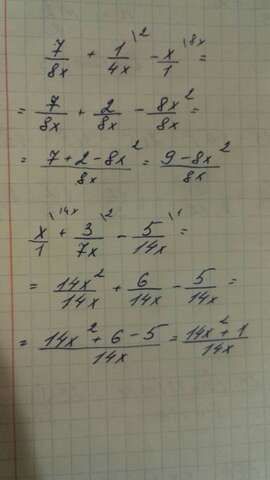 7/8x + 1\2/4x - x\8x/1 =
= 7/8x + 2/8x - 8x²/8x =
= 7+2-8x²/8x = 9-8x²/8x
x\14x/1 + 3\2/7x - 5\1/14x =
= 14x²/14x + 6/14x - 5/14x =
= 14x²+6-5/14x = 14x²+1/14x